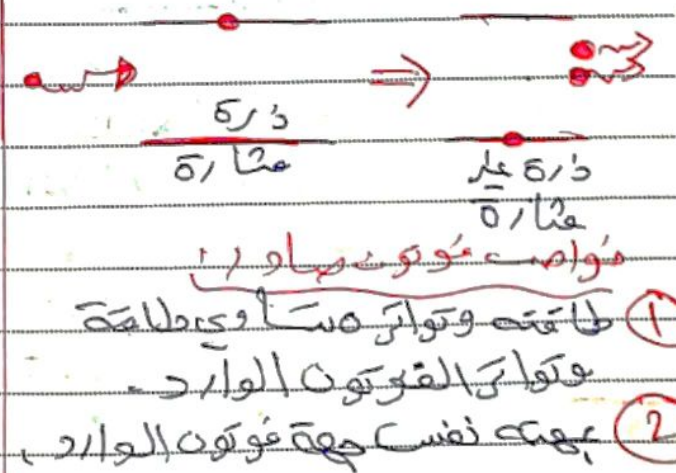 ذرة
مثارة
ذرة غير
مثارة
خواص فوتون صادر:
① طاقته وتواتر مساوي طاقة
وتواتر الفوتون الوارد.
② جهته نفس جهة فوتون الوارد.